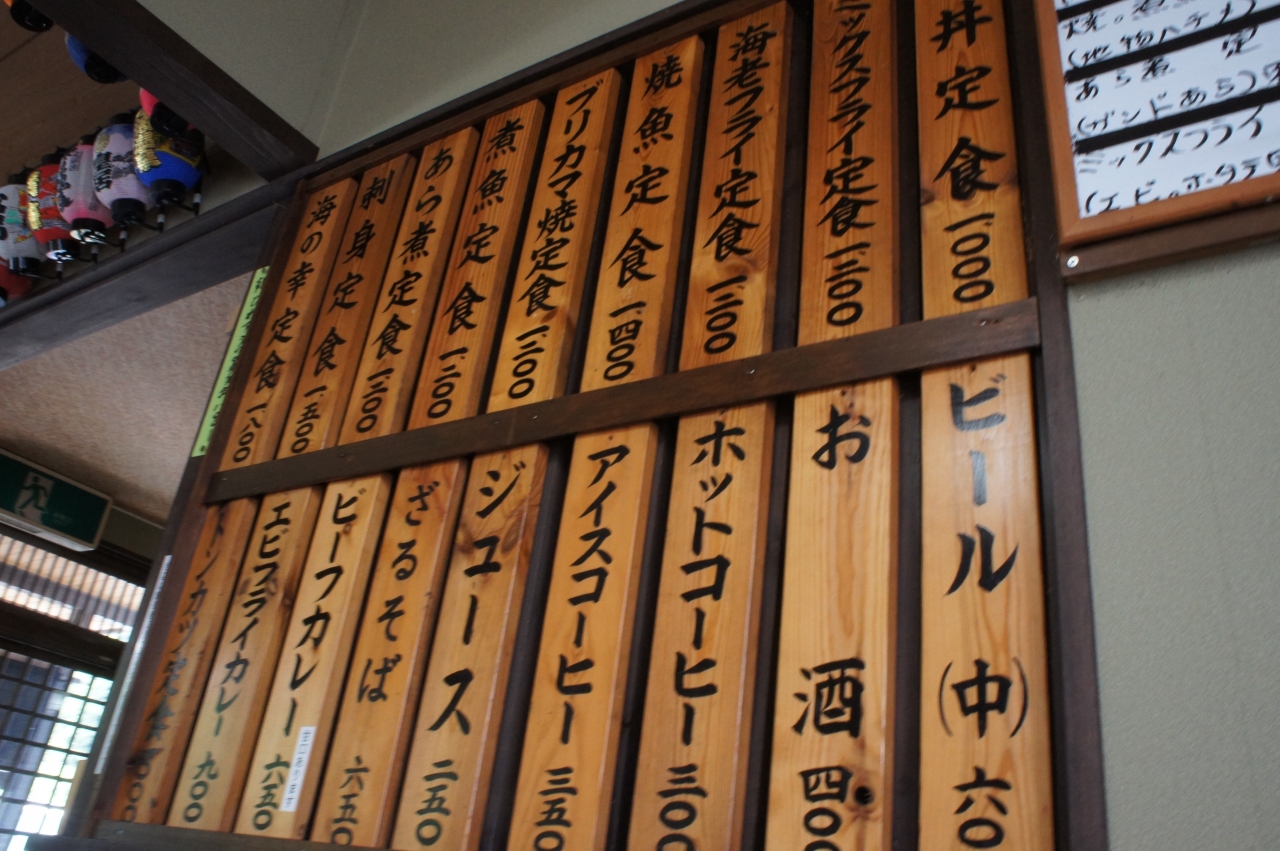 丼定食 一、〇〇〇
ミックスフライ定食 一、二〇〇
海老フライ定食 一、二〇〇
焼魚定食 一、四〇〇
ブリカマ焼定食 一、二〇〇
煮魚定食 一、二〇〇
あら煮定食 一、三〇〇
刺身定食 一、五〇〇
海の幸定食 一、八〇〇
ビール(中) 六〇
お酒 四〇〇
ホットコーヒー 三〇〇
アイスコーヒー 三五〇
ジュース 二五〇
ざるそば 六五〇
ビーフカレー 六五〇
エビフライカレー 九〇〇
トンカツ定食
あら煮 定
(ガンドあら)
ミックスフライ